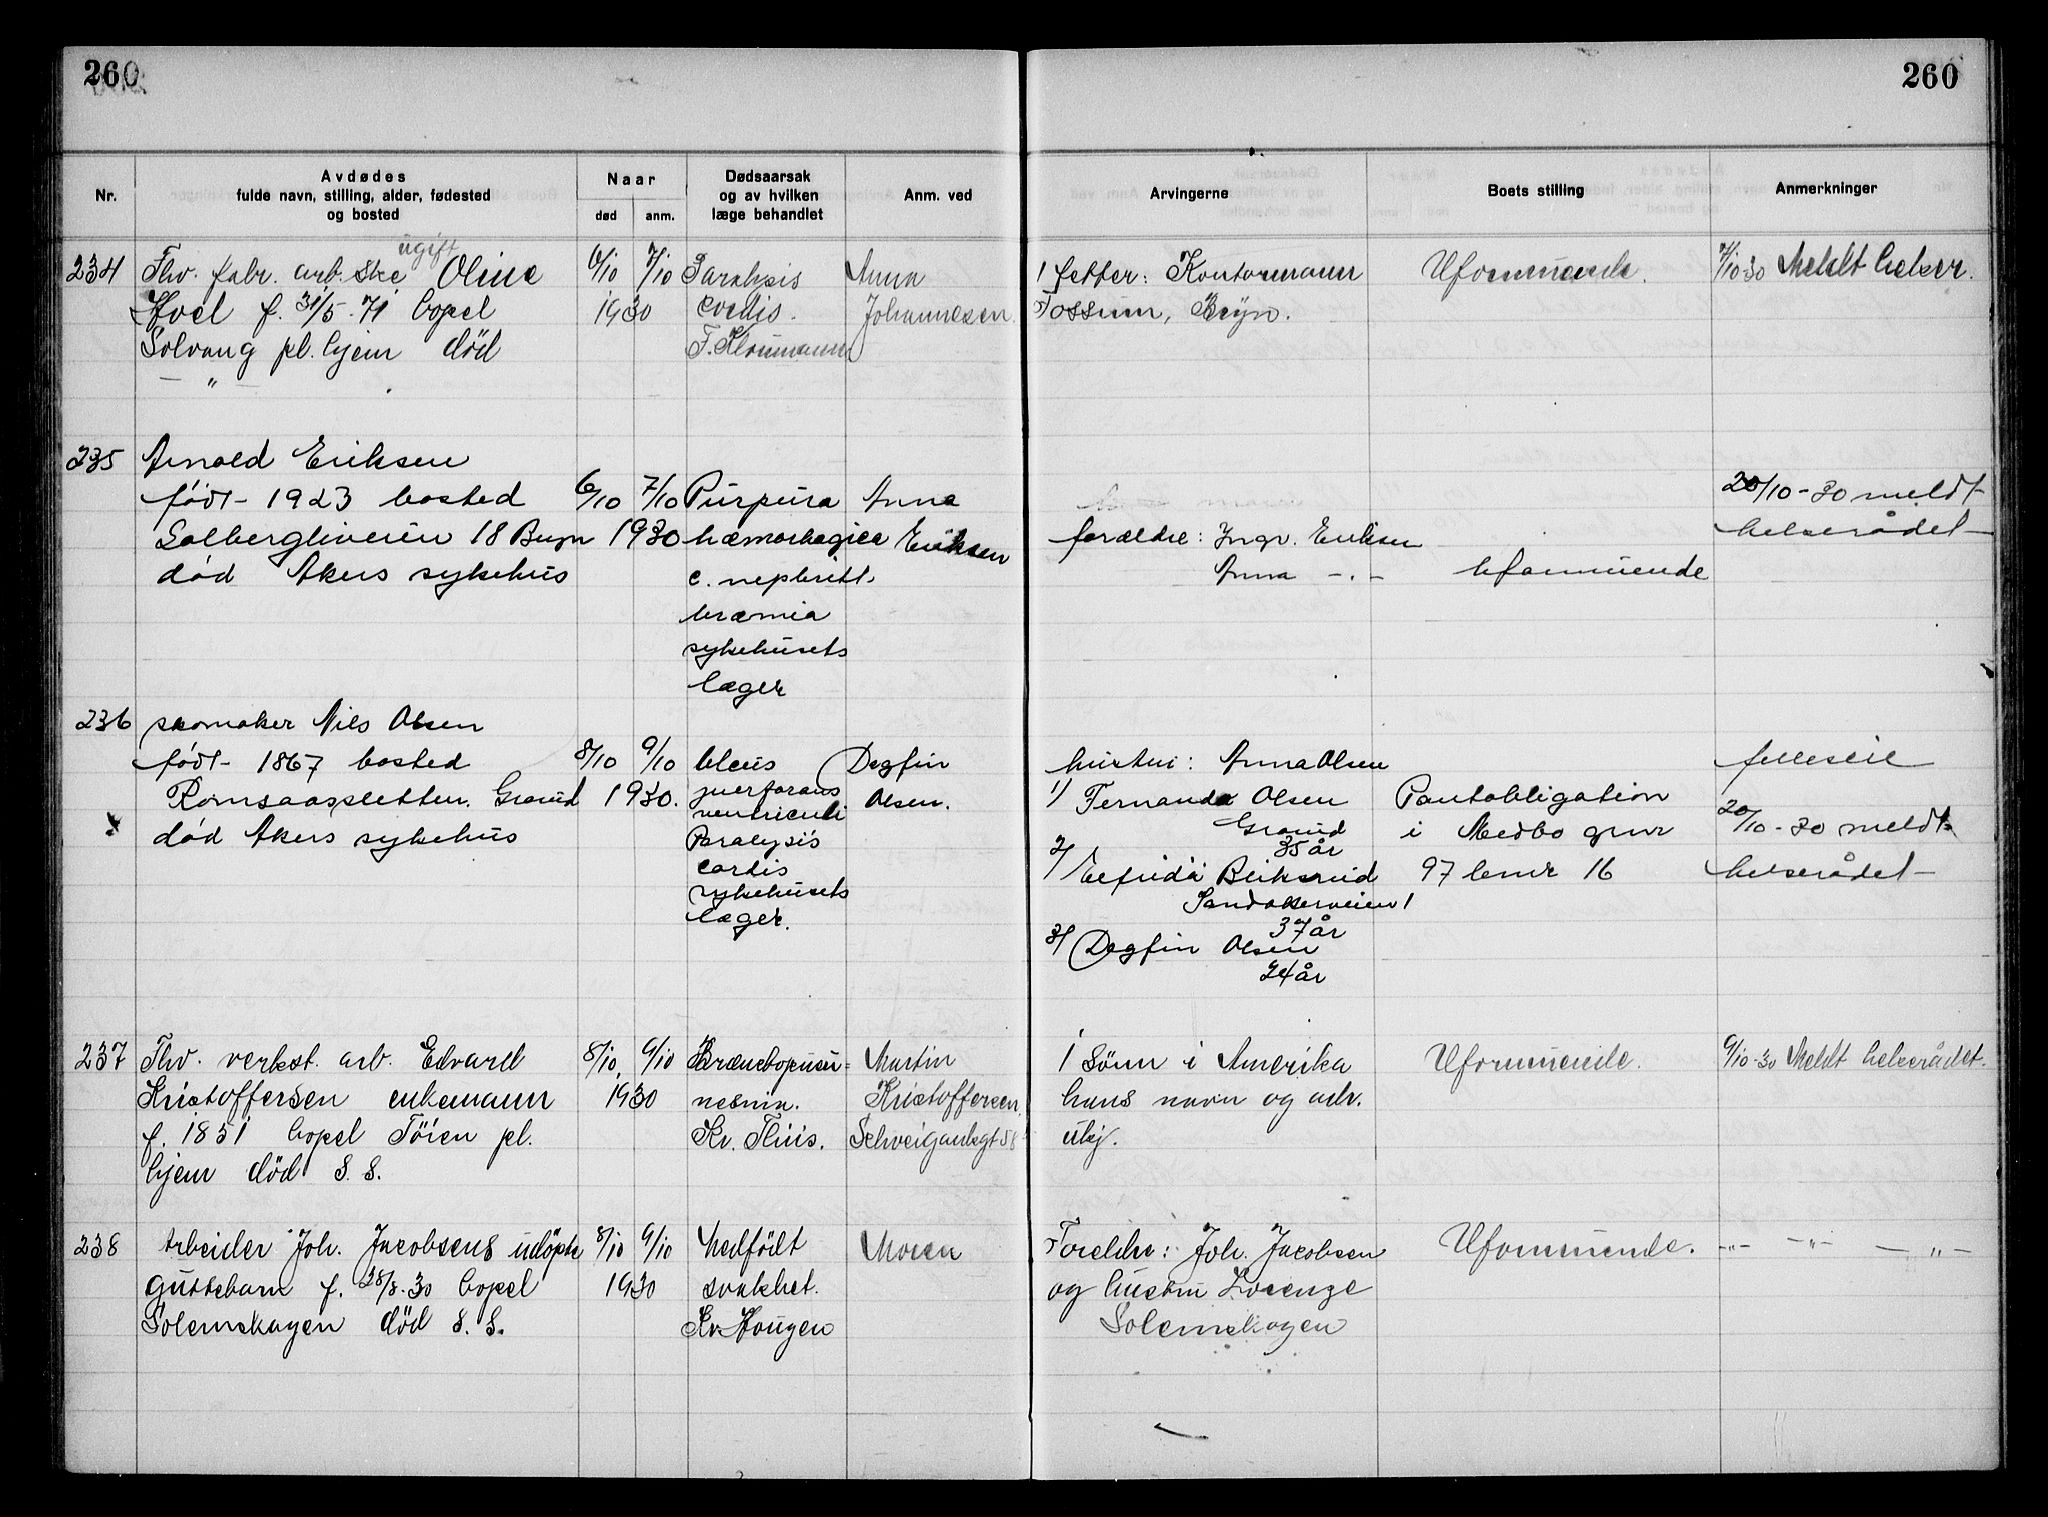 260
260
Nr.
Avdødes
fulde navn, stilling, alder, fødested
og bosted
Naar
død
anm.
Dødsaarsak
og av hvilken
læge behandlet
Anm. ved
Arvingerne
Boets stilling
Anmerkninger
234
Fhv. fabr. arb. ske ugift Oline
Hoel f. 31/5-71 bopel
Solvang pl. hjem død
— " —
6/10
7/10
1930
Paralysis
cordis.
F. Kloumann
Anna
Johannesen.
1 fetter: Kontormann
Fossum, Bryn.
Uformuende.
7/10-30 Meldt helser.
235
Arnold Eriksen
født 1923 bosted
Solbergliveien 18 Bryn
død Akers sykehus
6/10
7/10
1930
Purpura
hæmorhagica
c. nephritt
uræmia
sykehusets
læger
Anna
Eriksen
forældre: Ingv. Eriksen
Anna — . —
Uformuende
20/10-30 meldt
helserådet
236
skomaker Nils Olsen
født 1867 bosted
Romsaasletten. Grorud
død Akers sykehus
8/10
9/10
1930.
Ulcus
perforans
ventriculi
Paralysis
cordis
sykehusets
læger.
Dagfin
Olsen.
hustru: Anna Olsen
1) Fernanda Olsen
Grorud
35 år
2/ Elfrida Beiksrud
Sandakerveien 1
37 år
3/ Dagfin Olsen
24 år
Pantobligation
i Medbo gnr
97 bnr 16
felleseie
20/10-30 meldt
helserådet
237
Fhv. verkst. arb. Edvard
Kristoffersen enkemann
f. 1851 bopel Tøien pl.
hjem død S. S.
8/10
9/10
1930
Broncopneu-
Kr. Thiis.
Martin
Kristoffersen,
Schweigaardsgt 58
1 sønn i Amerika
hans navn og adr.
ukj.
Uformuende.
9/10-30 Meldt helserådet.
238
Arbeider Joh. Jacobsens udøpte
guttebarn f. 28/8-30 bopel
Solemskogen død S. S.
8/10
9/10
1930
Medfødt
svakhet.
Kr. Hougen
Moren
Foreldre: Joh. Jacobsen
og hustru Lorenze
Solemskogen
Uformuende.
—"— —"— — " —